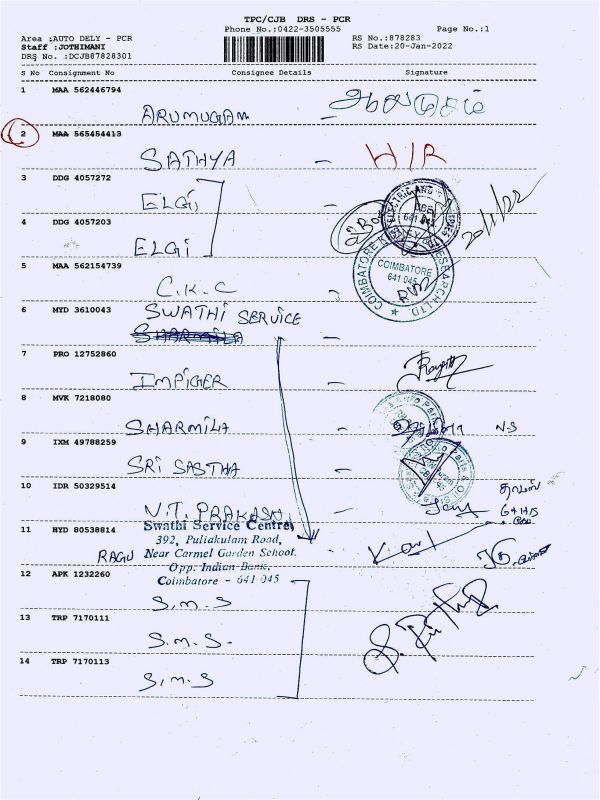 TPC/CJB DRS - PCR
Phone No.:0422-3505555 Page No.:1
Area :AUTO DELY - PCR RS No.:878283
Staff :JOTHIMANI RS Date:20-Jan-2022
DRS No. :DCJB87828301
S No Consignment No Consignee Details Signature
1 MAA 562446794
ARUMUGAM -
2 MAA 565454413
SATHYA - H/R
3 DDG 4057272
ELGI
4 DDG 4057203
ELGI
20/1/22
COIMBATORE
641 045
5 MAA 562154739
C.K.C -
6 MYD 3610043
SWATHI SERVICE
SHARMILA -
7 PRO 12752860
IMPIGER -
8 MVK 7218080
SHARMILA - N-S
9 IXM 49788259
SRI SASTHA -
10 IDR 50329514
V.T. PRAKASH -
11 HYD 80538814
RAGU -
Swathi Service Centre,
392, Puliakulam Road,
Near Carmel Garden School.
Opp. Indian Bank,
Coimbatore - 641 045
12 APK 1232260
S.M.S
13 TRP 7170111
S.M.S.
14 TRP 7170113
S.M.S